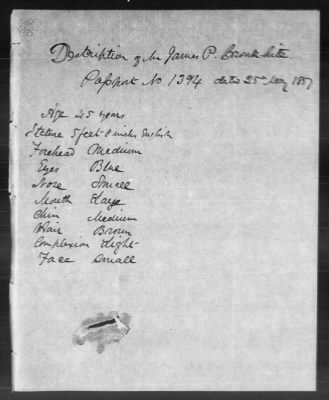 Description of Mr James P. Cronkhite
Passport No 1394 dated 25th May 1857
Age 45 years
Stature 5 feet 8 inches English
Forehead Medium
Eyes Blue
Nose Small
Mouth Large
Chin Medium
Hair Brown
Complexion Light
Face Small